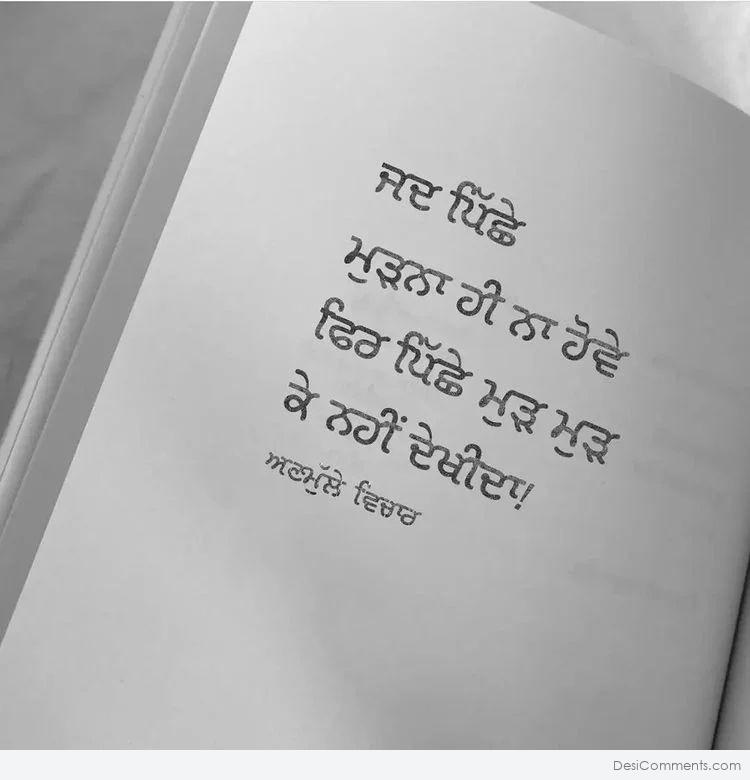 ਜਦ ਪਿੱਛੇ
ਮੁੜਨਾ ਹੀ ਨਾ ਹੋਵੇ
ਫਿਰ ਪਿੱਛੇ ਮੁੜ ਮੁੜ
ਕੇ ਨਹੀਂ ਦੇਖੀਦਾ!
ਅਣਮੁੱਲੇ ਵਿਚਾਰ
DesiComments.com